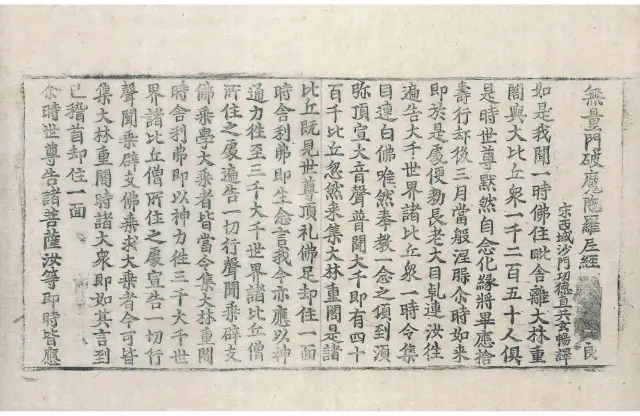 無量門破魔陁羅尼經
良
宋西域沙門功德直共玄暢譯
如是我聞一時佛住毗舍離大林重
閣與大比丘衆一千二百五十人俱
是時世尊默然自念化緣將畢應捨
壽行却後三月當般涅脲尒時如来
即於是處便勑長老大目乹連汝往
遍告大千世界諸比丘衆一時令集
目連白佛唯然奉教一念之頃到湏
弥頂宣大音聲普聞大千即有四十
百千比丘忽然来集大林重閣是諸
比丘既見世尊頂礼佛足却住一面
時舎利弗即生念言我今亦應以神
通力往至三千大千世界諸比丘僧
所住之處遍告一切行聲聞乘辟支
佛乘學大乘者皆當令集大林重閣
時舎利弗即以神力往三千大千世
界諸比丘僧所住之處宣告一切行
聲聞乘辟支佛乘求大乘者今可皆
集大林重閣時諸大衆即如其言到
已稽首却住一面
尒時世尊告諸菩薩汝等即時皆應